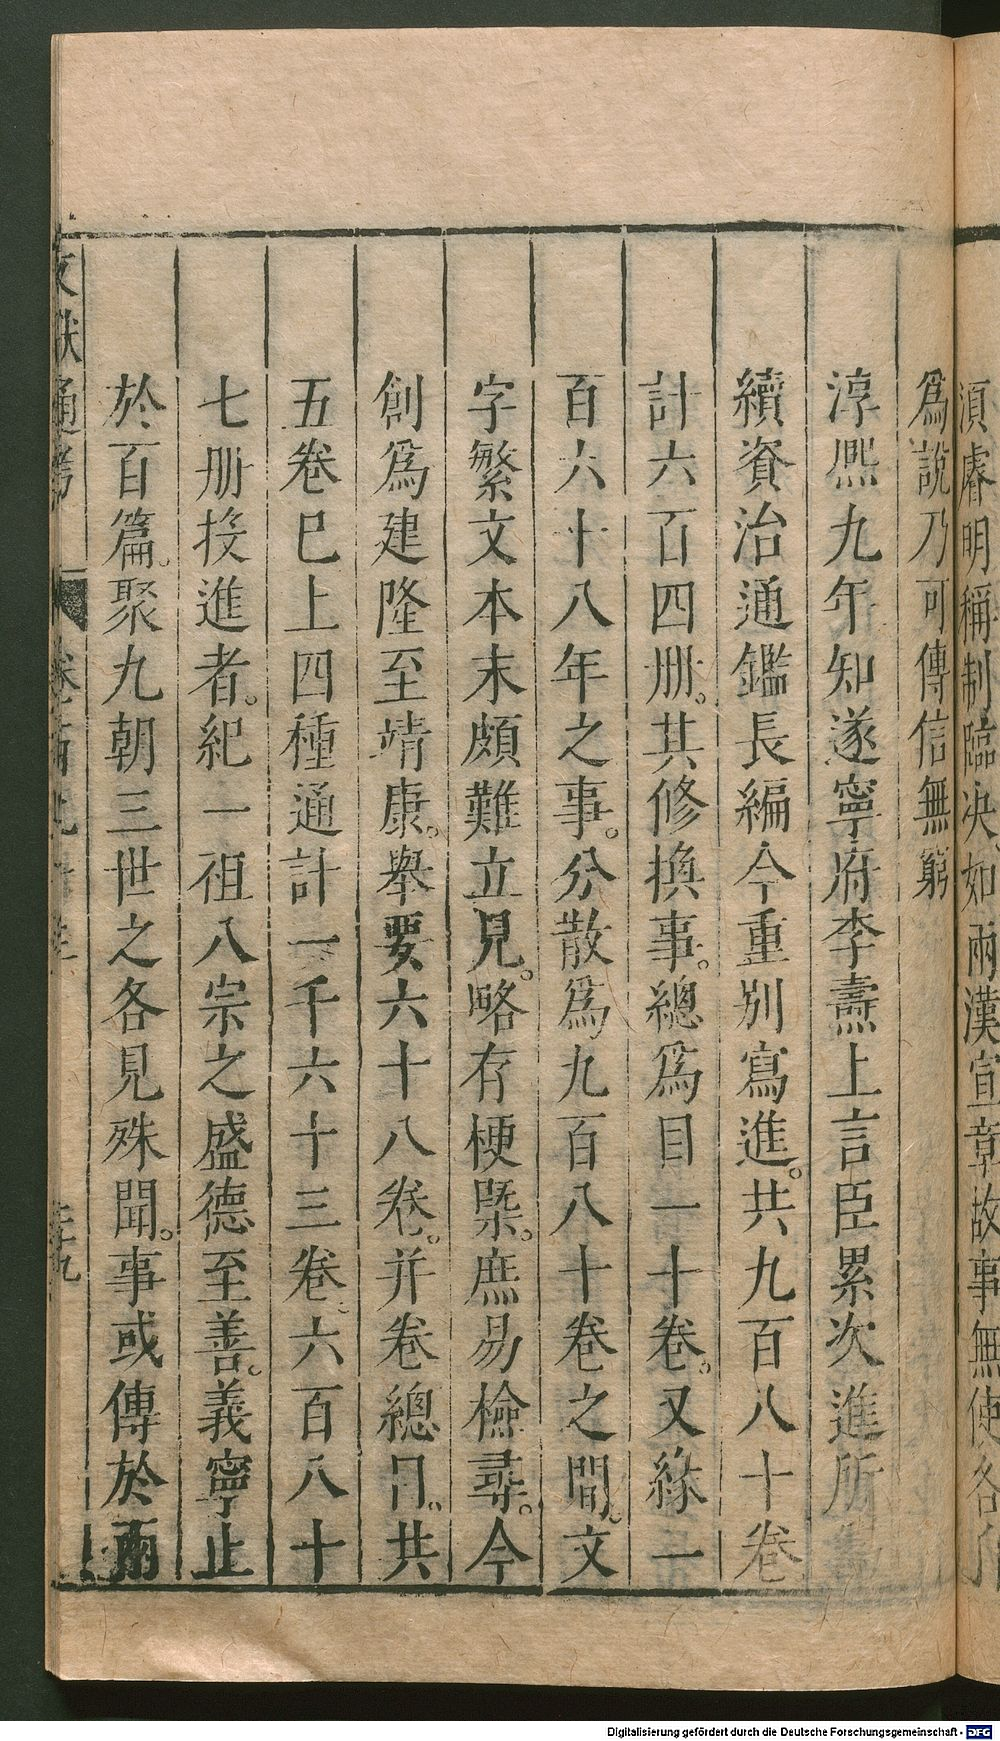 湏睿明稱制臨决如兩漢宣章故事無使各自
爲說乃可傳信無窮
淳熈九年知遂寧府李燾上言臣累次進所
續資治通鑑長編今重别寫進。共九百八十卷
計六百四册。其修換事。總爲目一十卷。又緣一
百六十八年之事。分散爲九百八十卷之間。文
字繁文本末頗難立見。略存梗槩。庶易檢尋。今
創爲建隆至靖康。舉要六十八卷。并卷總目。共
五卷巳上四種通計一千六十三卷。六百八十
七册投進者。紀一祖八宗之盛德至善。義寧止
於百篇。聚九朝三世之各見殊聞。事或傳於兩
文獻通考
Digitalisierung gefördert durch die Deutsche Forschungsgemeinschaft - DFG